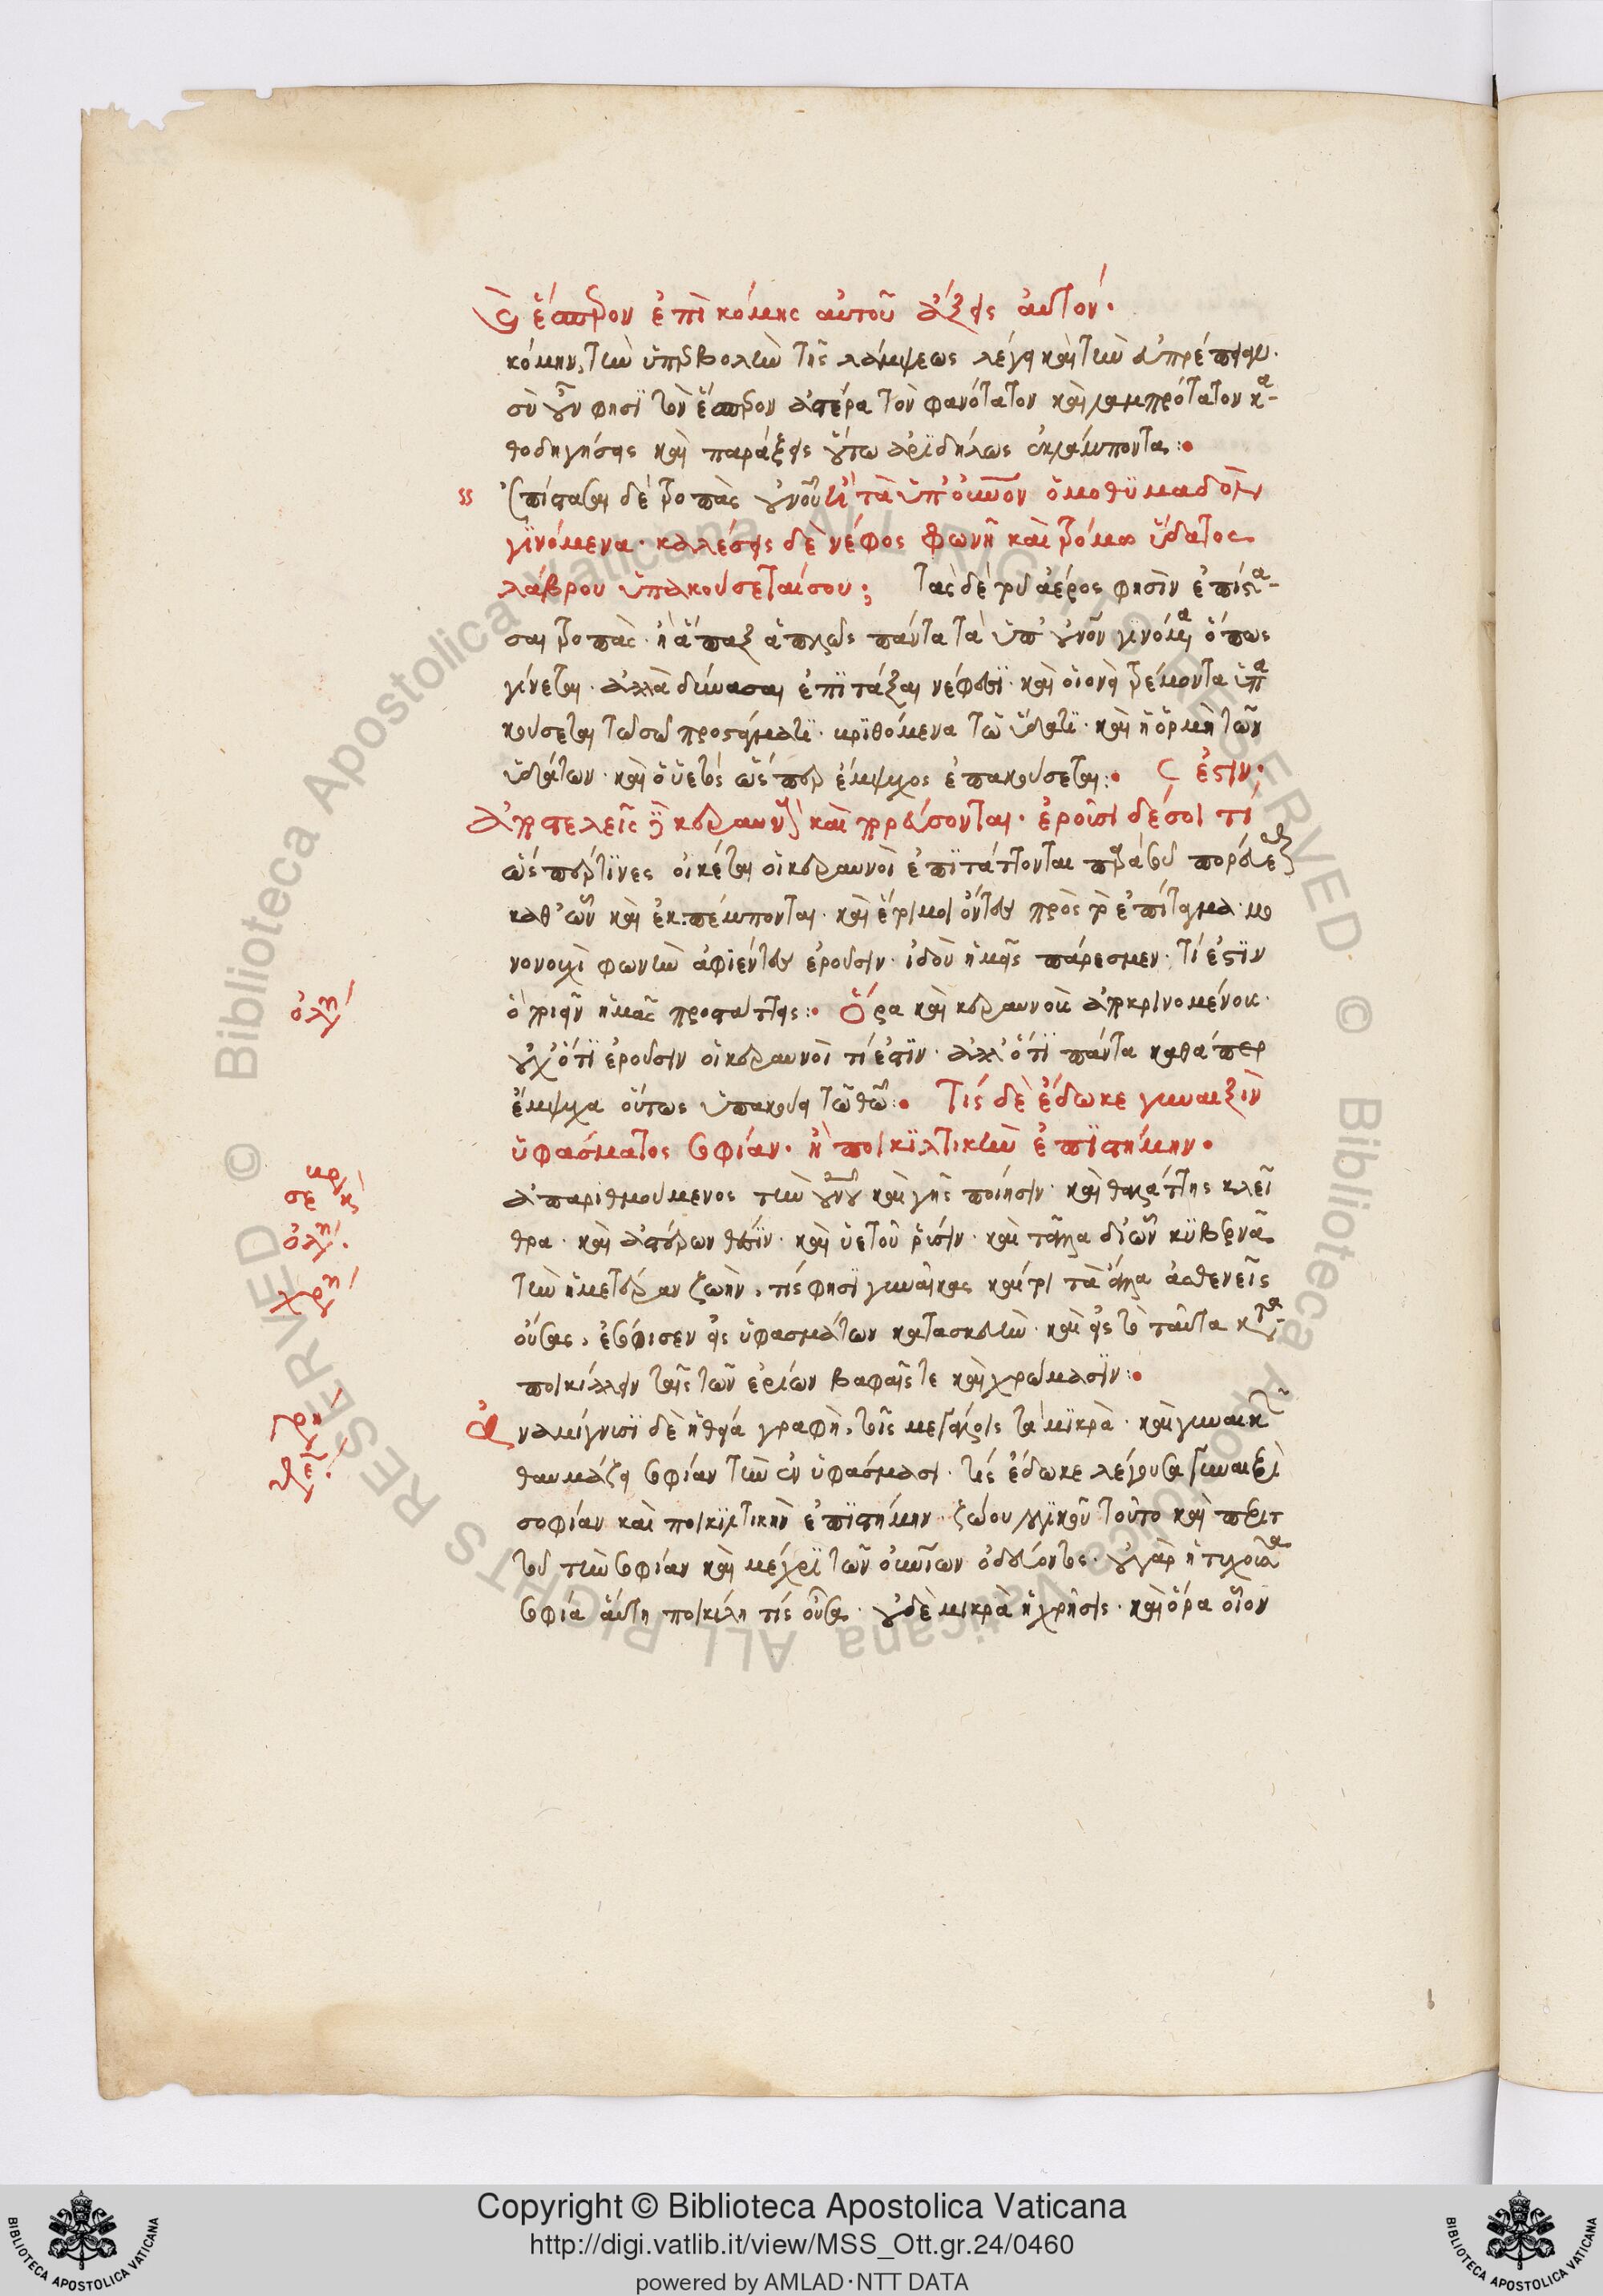 καὶ ἕσπερον ἐπὶ κόμης αὐτοῦ ἄξεις αὐτόν·
κόμην, τὴν ὑπερβολὴν τῆς λάμψεως λέγει καὶ τὴν εὐπρέπειαν·
σὺ οὖν φησὶ τὸν ἕσπερον ἀστέρα τὸν φανότατον καὶ λαμπρότατον κα-
θοδηγήσεις καὶ παράξεις οὕτω ἀριδήλως ἐκλάμποντα:
ἐπίστασαι δὲ ῥοπὰς οὐνοῦ ἢ τὰ ὑπ' οὐνὸν ὁμοθυμαδὸν
γινόμενα· καλέσεις δὲ νέφος φωνῆ καὶ τρόμω ὕδατος
λάβρου ὑπακούσεταί σου; τὰς δὲ τοῦ ἀέρος φησὶν ἐπίστα-
σαι ῥοπὰς· ἢ ἅπαξ ἁπλῶς πάντα τὰ ὑπ' οὐνὸν γινόμενα ὅπως
γίνεται· ἀλλὰ δύνασαι ἐπιτάξαι νέφεσι· καὶ οἱονεὶ τρέμοντα ὑπα
κούσεται τῶ σῶ προστάγματι· τῶ ὕδατι· καὶ ἡ ὁρμὴ τῶν
ὑδάτων· καὶ ὁ ὑετός ὥσπερ ἔμψυχος ἐπακούσεται: ἐστιν;
ἀποστελεῖς δὲ κεραυνοὺς καὶ πορεύσονται· ἐροῦσι δέ σοι τί
ὥσπερ τινες οἰκέται οἱ κεραυνοὶ ἐπιτάττονται παρὰ σοῦ πορεύεσθαι
καθ' ὧν καὶ ἐκπέμπονται· καὶ ἕτοιμοι ὄντες πρὸς τὸ ἐπίταγμα· μο
νονουχὶ φωνὴν ἀφιέντες ἐροῦσιν· ἰδοὺ ἡμεῖς πάρεσμεν· τί ἐστιν
ὃ ποιεῖν ἡμᾶς προστάττεις: Ὅρα καὶ κεραυνοὺς ἀποκρινομένους·
οὐχ ὅτι ἐροῦσιν οἱ κεραυνοὶ τί ἐστιν· ἀλλ' ὅτι πάντα καθάπερ
ἔμψυχα οὕτως ὑπακούει τῶ θῶ: Τίς δὲ ἔδωκε γυναιξὶν
ὑφάσματος σοφίαν· ἢ ποικιλτικὴν ἐπιστήμην·
ἀπαριθμούμενος τὴν οὐνοῦ καὶ γῆς ποίησιν· καὶ θαλάττης κλεῖ
θρα· καὶ ἀστέρων θέσιν· καὶ ὑετοῦ ῥύσιν· καὶ τἄλλα δι' ὧν κυβερνᾶ
τὴν ἡμετέραν ζωὴν, τίς φησὶ γυναῖκας καίτοι τὰ ἄλλα ἀσθενεῖς
οὔσας, ἐσόφισεν εἰς ὑφασμάτων κατασκευὴν· καὶ εἰς τὸ ταῦτα κατα-
ποικίλλειν ταῖς τῶν ἐρίων βαφαῖς τε καὶ χρώμασιν:
Ἀναμίγνυσι δὲ ἡ θεία γραφὴ, τοῖς μεγάλοις τὰ μικρὰ· καὶ γυναικῶν
θαυμάζει σοφίαν τὴν ἐν ὑφάσμασι· τίς ἔδωκε λέγουσα γυναιξὶ
σοφίαν καὶ ποικιλτικὴν ἐπιστήμην· ζώου λογικοῦ τοῦτο καὶ περιτ
τοῦ τὴν σοφίαν καὶ μέχρι τῶν οἰκείων ὁδεύοντος· οὐ γὰρ ἡ τυχοῦσα
σοφία αὕτη ποικίλη τίς οὖσα· οὐδὲ μικρὰ ἡ χρῆσις· καὶ ὅρα οἷον
Copyright © Biblioteca Apostolica Vaticana
http://digi.vatlib.it/view/MSS_Ott.gr.24/0460
powered by AMLAD·NTT DATA